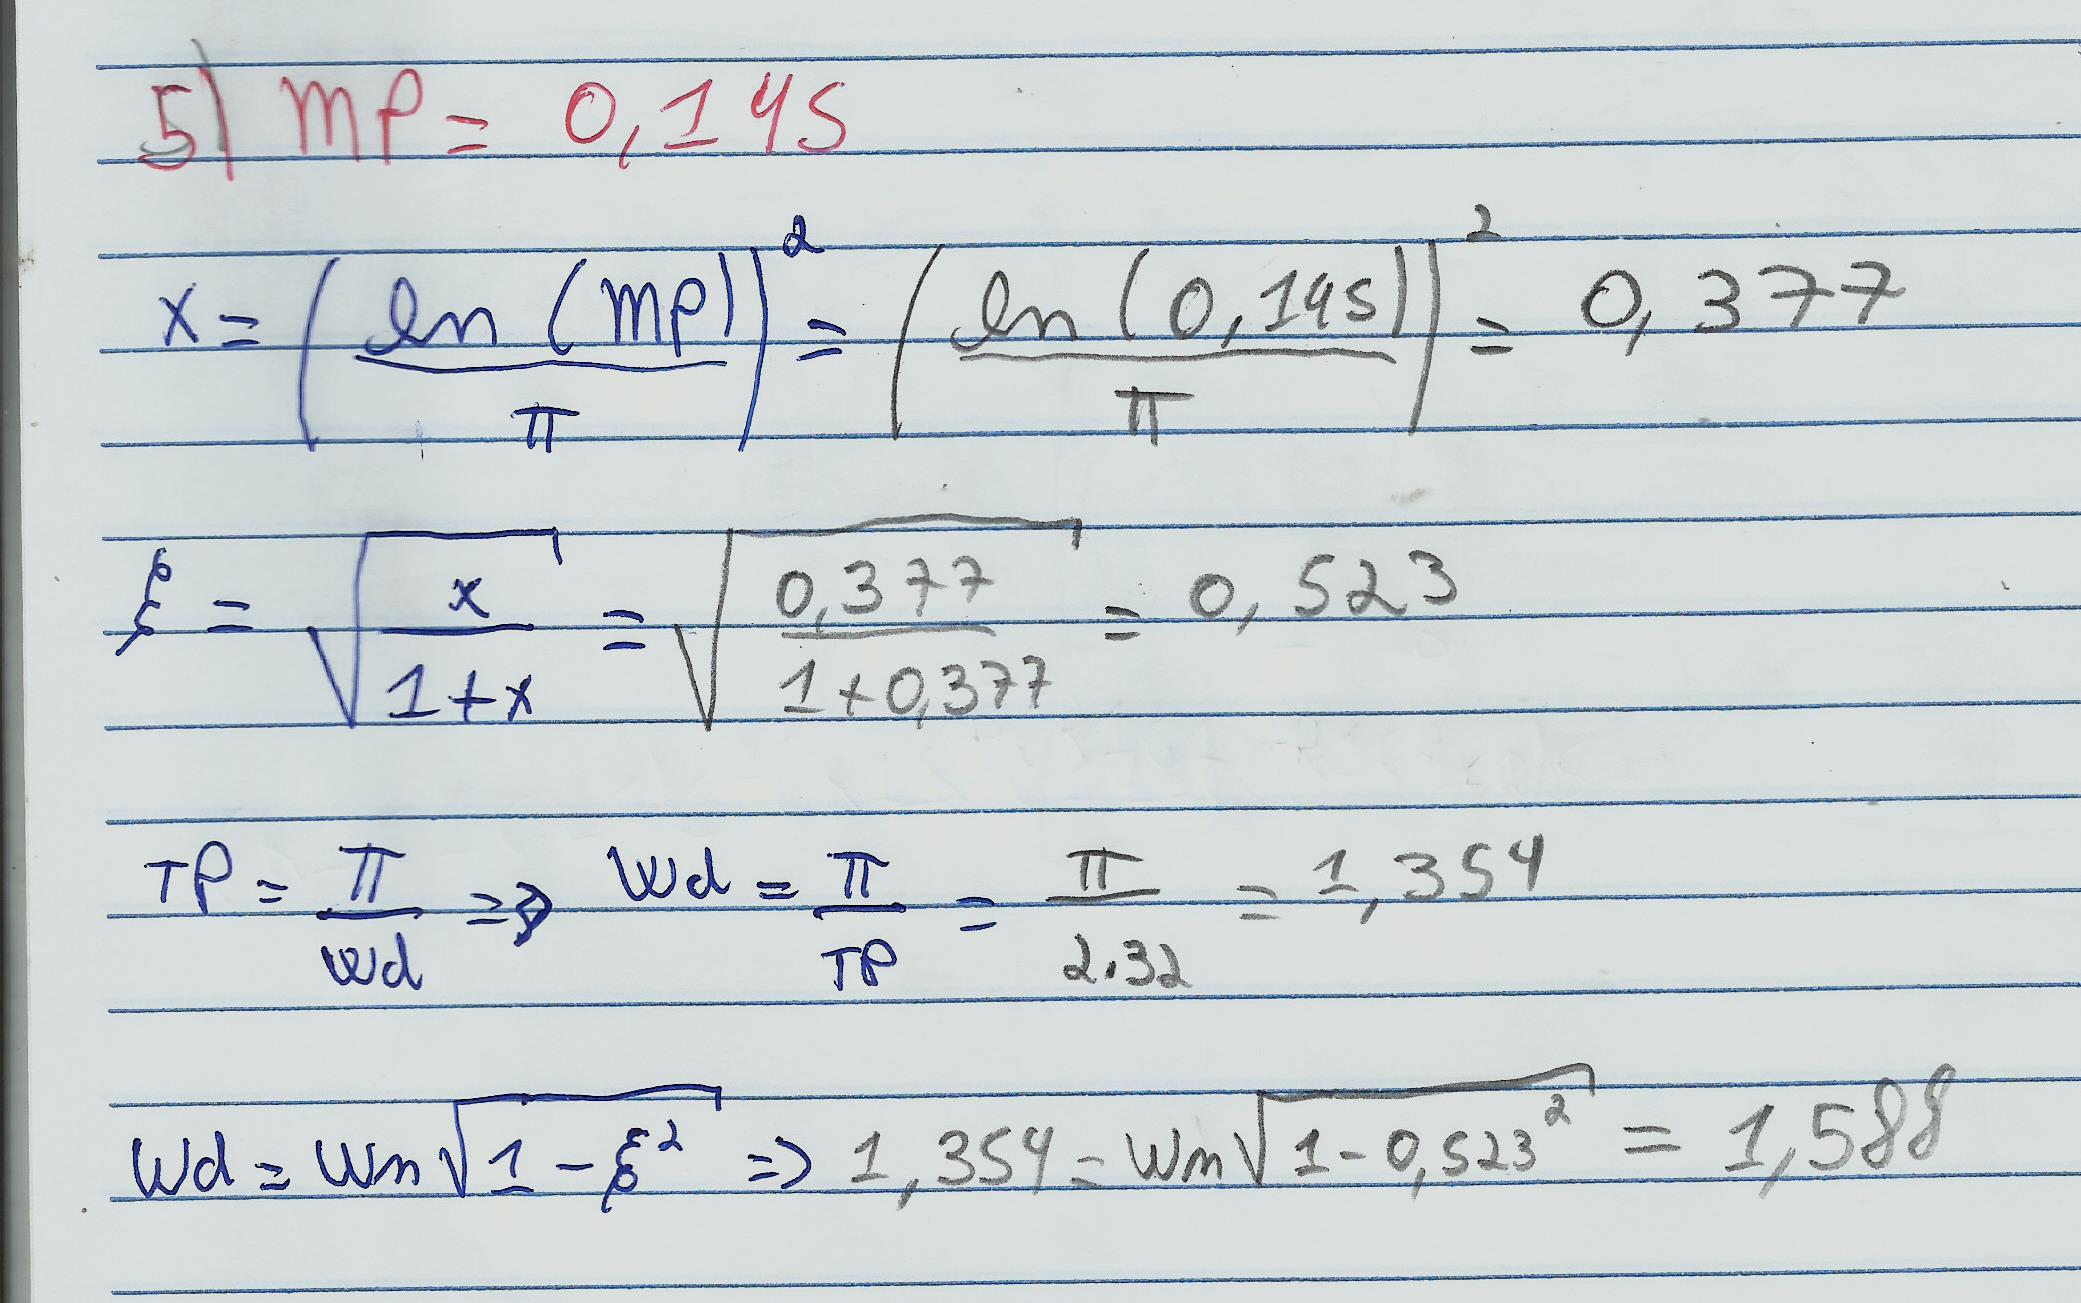 5) MP = 0,145
x = (ln (MP) / π)² = (ln (0,145) / π)² = 0,377
ξ = √(x / 1+x) = √(0,377 / 1+0,377) = 0,523
TP = π / Wd => Wd = π / TP = π / 2.32 = 1,354
Wd = Wn √(1 - ξ²) => 1,354 = Wn √(1 - 0,523²) = 1,588